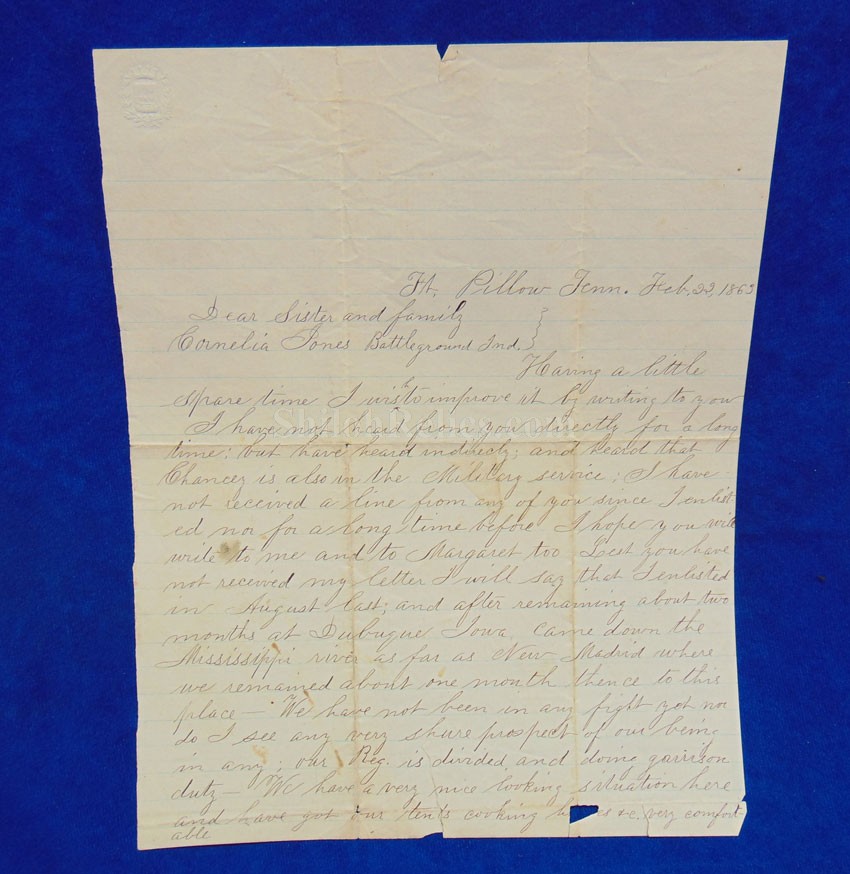 Ft. Pillow Tenn. Feb. 22, 1863
Dear Sister and family
Cornelia Jones Battleground Ind.
Having a little
spare time I wish to improve it by writing to you
I have not heard from you directly for a long
time; but have heard indirectly; and heard that
Chancey is also in the Military service; I have
not received a line from any of you since I enlist
ed nor for a long time before I hope you will
write to me and to Margaret too Lest you have
not received my letter I will say that I enlisted
in August last; and after remaining about two
months at Dubuque Iowa, came down the
Mississippi river as far as New Madrid where
we remained about one month thence to this
place — We have not been in any fight yet nor
do I see any very shure prospect of our being
in any; our Reg. is divided, and doing garrison
duty — We have a very nice looking situation here
and have got our tents cooking h es &c. very comfort
able